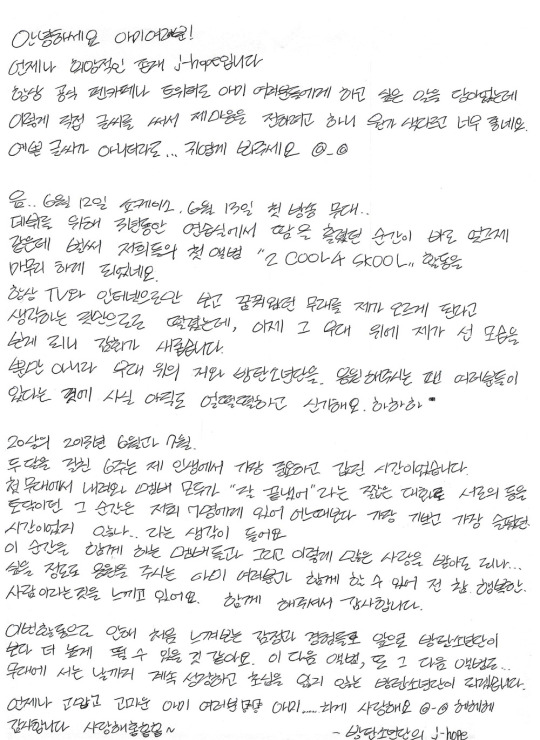 안녕하세요 아미여러분!
언제나 희망적인 존재 j-hope입니다
항상 공식 펜카페나 트위터로 아미 여러분들에게 하고 싶은 말을 담아냈는데
이렇게 직접 글씨를 써서 제마음을 전하려고 하니 뭔가 색다르고 너무 좋네요.
예쁜 글씨가 아니더라도... 귀엽게 봐주세요 @_@
음.. 6월 12일 쇼케이스, 6월 13일 첫 방송 무대..
데뷔를 위해 3년동안 연습실에서 땀을 흘렸던 순간이 바로 엊그제
같은데 벌써 저희들의 첫 앨범 "2 COOL 4 SKOOL" 활동을
마무리 하게 되었네요.
항상 TV와 인터넷으로만 보고 꿈꿔왔던 무대를 제가 오르게 된다고
생각하는 것만으로도 떨렸는데, 이제 그 무대 위에 제가 선 모습을
보게 되니 감회가 새롭습니다.
뿐만 아니라 무대 위의 저와 방탄소년단을 응원해주시는 팬 여러분들이
있다는 것에 사실 아직도 얼떨떨하고 신기해요. 하하하
20살의 2013년 6월과 7월.
두달을 걸친 6주는 제 인생에서 가장 중요하고 값진 시간이었습니다.
첫 무대에서 내려와 멤버 모두가 "잘 끝냈어"라는 짧은 대화로 서로의 등을
토닥이던 그 순간은 저희 7명에게 있어 어느때보다 가장 기쁘고 가장 슬펐던
시간이었지 않나.. 라는 생각이 들어요
이 순간을 함께 하는 멤버들과 그리고 이렇게 많은 사랑을 받아도 되나...
싶을 정도로 응원을 주시는 아미 여러분과 함께 할 수 있어 전 참 행복한
사람이라는것을 느끼고 있어요. 함께 해주셔서 감사합니다.
이번활동으로 인해 처음 느껴보는 감정과 경험들로 앞으로 방탄소년단이
보다 더 높게 뛸 수 있을 것 같아요. 이 다음 앨범, 또 그 다음 앨범도...
무대에 서는 날까지 계속 성장하고 초심을 잃지 않는 방탄소년단이 되겠습니다.
언제나 고맙고 고마운 아미 여러분 아미.....하게 사랑해요 @-@ 헤헤헤
감사합니다 사랑해 ~
- 방탄소년단의 j-hope